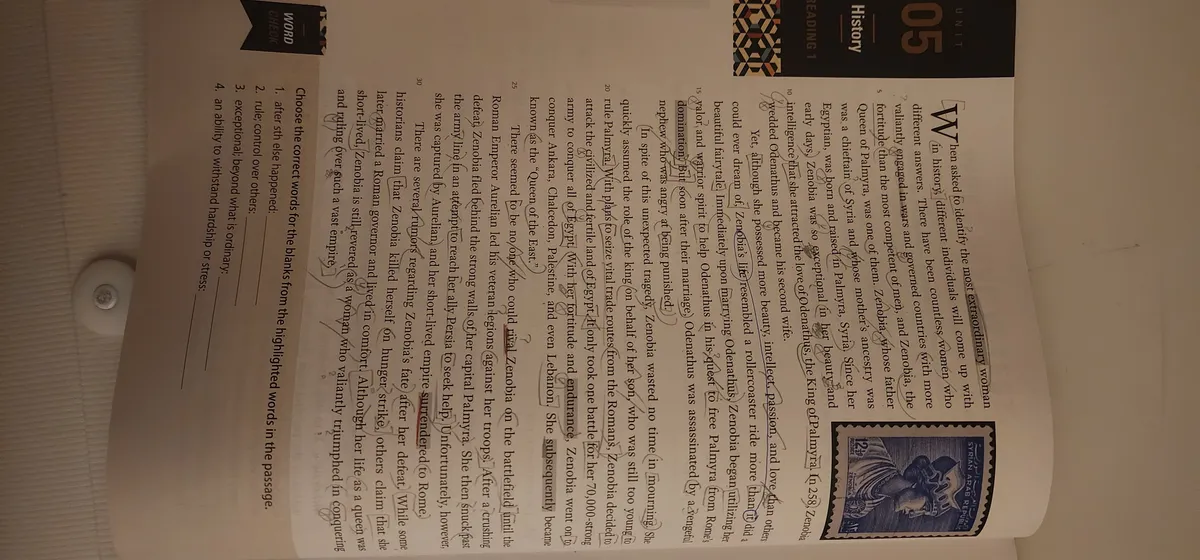 UNIT
05
History
READING 1
When asked to identify the most extraordinary woman
in history, different individuals will come up with
different answers. There have been countless women who
valiantly engaged in wars and governed countries with more
5 fortitude than the most competent of men, and Zenobia, the
Queen of Palmyra, was one of them. Zenobia, whose father
was a chieftain of Syria and whose mother's ancestry was
Egyptian, was born and raised in Palmyra, Syria. Since her
early days, Zenobia was so exceptional in her beauty and
10 intelligence that she attracted the love of Odenathus, the King of Palmyra. In 258, Zenobia
wedded Odenathus and became his second wife.
Yet, although she possessed more beauty, intellect, passion, and love than others
could ever dream of, Zenobia's life resembled a rollercoaster ride more than it did a
beautiful fairytale. Immediately upon marrying Odenathus, Zenobia began utilizing her
15 valor, and warrior spirit to help Odenathus in his quest to free Palmyra from Rome's
domination. But soon after their marriage, Odenathus was assassinated by a vengeful
nephew who was angry at being punished.
In spite of this unexpected tragedy, Zenobia wasted no time in mourning. She
quickly assumed the role of the king on behalf of her son, who was still too young to
20 rule Palmyra. With plans to seize vital trade routes from the Romans, Zenobia decided to
attack the civilized and fertile land of Egypt. It only took one battle for her 70,000-strong
army to conquer all of Egypt. With her fortitude and endurance, Zenobia went on to
conquer Ankara, Chalcedon, Palestine, and even Lebanon. She subsequently became
known as the "Queen of the East."
25 There seemed to be no one who could rival Zenobia on the battlefield until the
Roman Emperor Aurelian led his veteran legions against her troops. After a crushing
defeat, Zenobia fled behind the strong walls of her capital Palmyra. She then snuck past
the army line in an attempt to reach her ally Persia to seek help. Unfortunately, however,
she was captured by Aurelian, and her short-lived empire surrendered to Rome.
30 There are several rumors regarding Zenobia's fate after her defeat. While some
historians claim that Zenobia killed herself on hunger strike, others claim that she
later married a Roman governor and lived in comfort. Although her life as a queen was
short-lived, Zenobia is still revered as a woman who valiantly triumphed in conquering
and ruling over such a vast empire.
SYRIAN ARAB REP
12½
WORD
CHECK
Choose the correct words for the blanks from the highlighted words in the passage.
1. after sth else happened:
2. rule; control over others:
3. exceptional; beyond what is ordinary:
4. an ability to withstand hardship or stress: